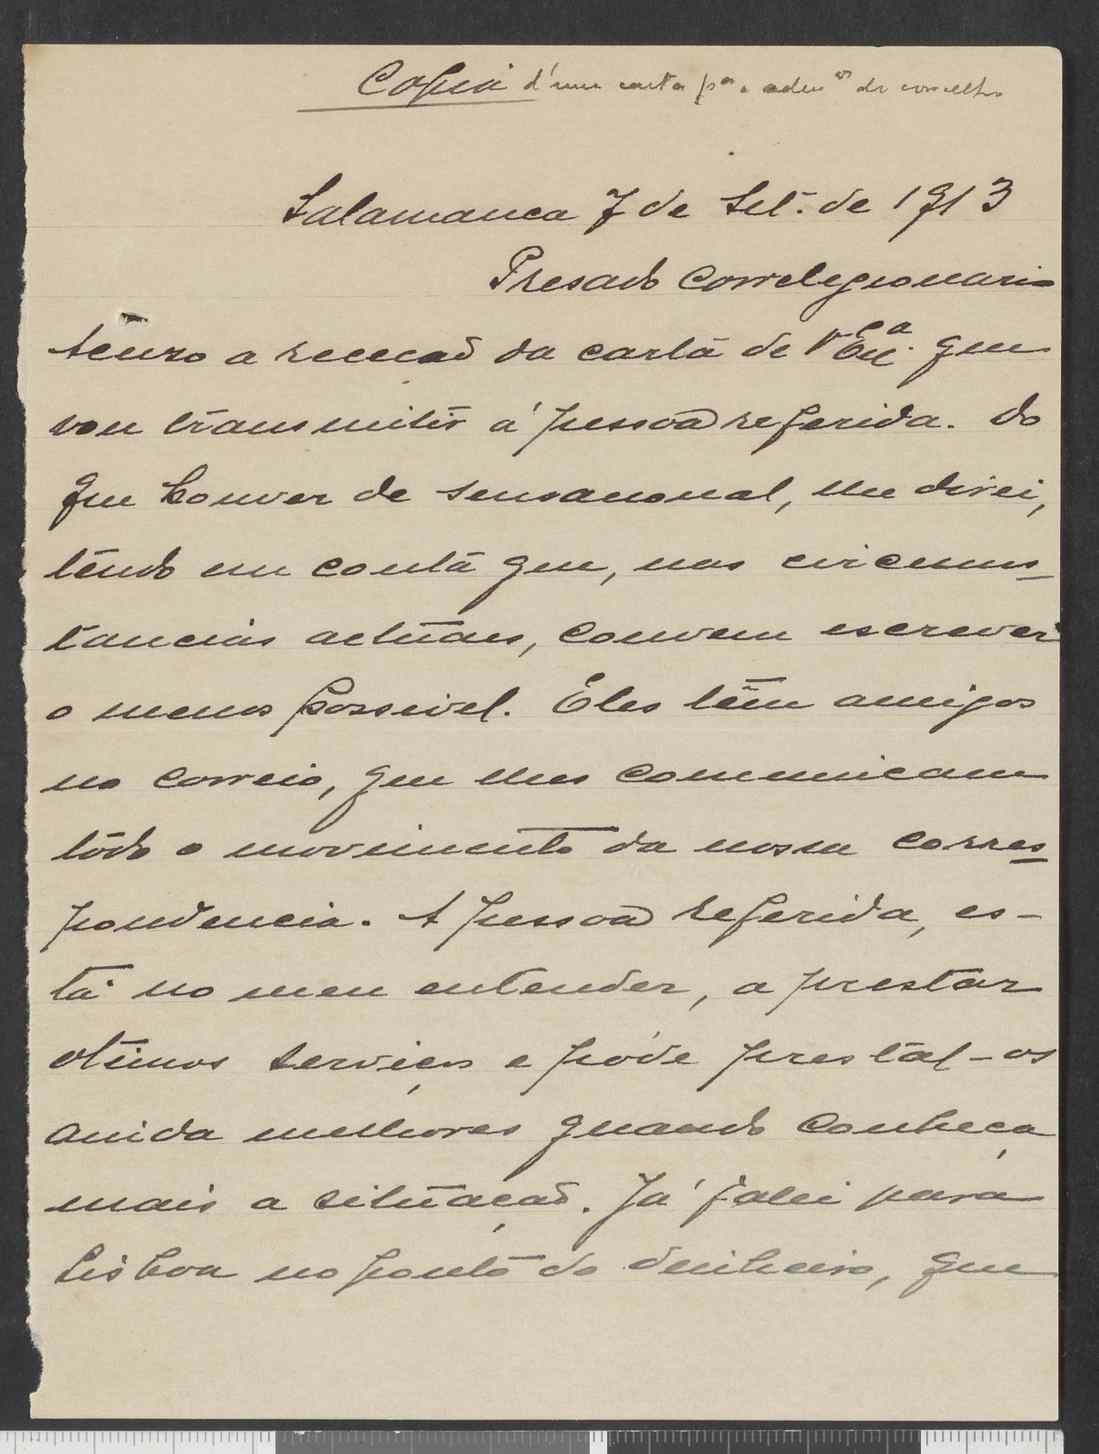 Copia d'uma carta pª o adm.or do concelho
Salamanca 7 de Set. de 1913
Presado Correlegionario
Acuzo a receção da carta de V. Exc.ª que
vou transmitir á pessoa referida. Do
que houver de sensacional, lhe direi,
tendo em conta que, nas circums-
tancias actuaes, convem escrever
o menos possivel. Eles têm amigos
no correio, que lhes communicam
tôdo o movimento da nossa corres-
pondencia. A pessoa referida, es-
tá no meu entender, a prestar
otimos serviços e póde prestal-os
ainda melhores quando conheça
mais a situação. Já falei para
Lisboa no ponto do dinheiro, que